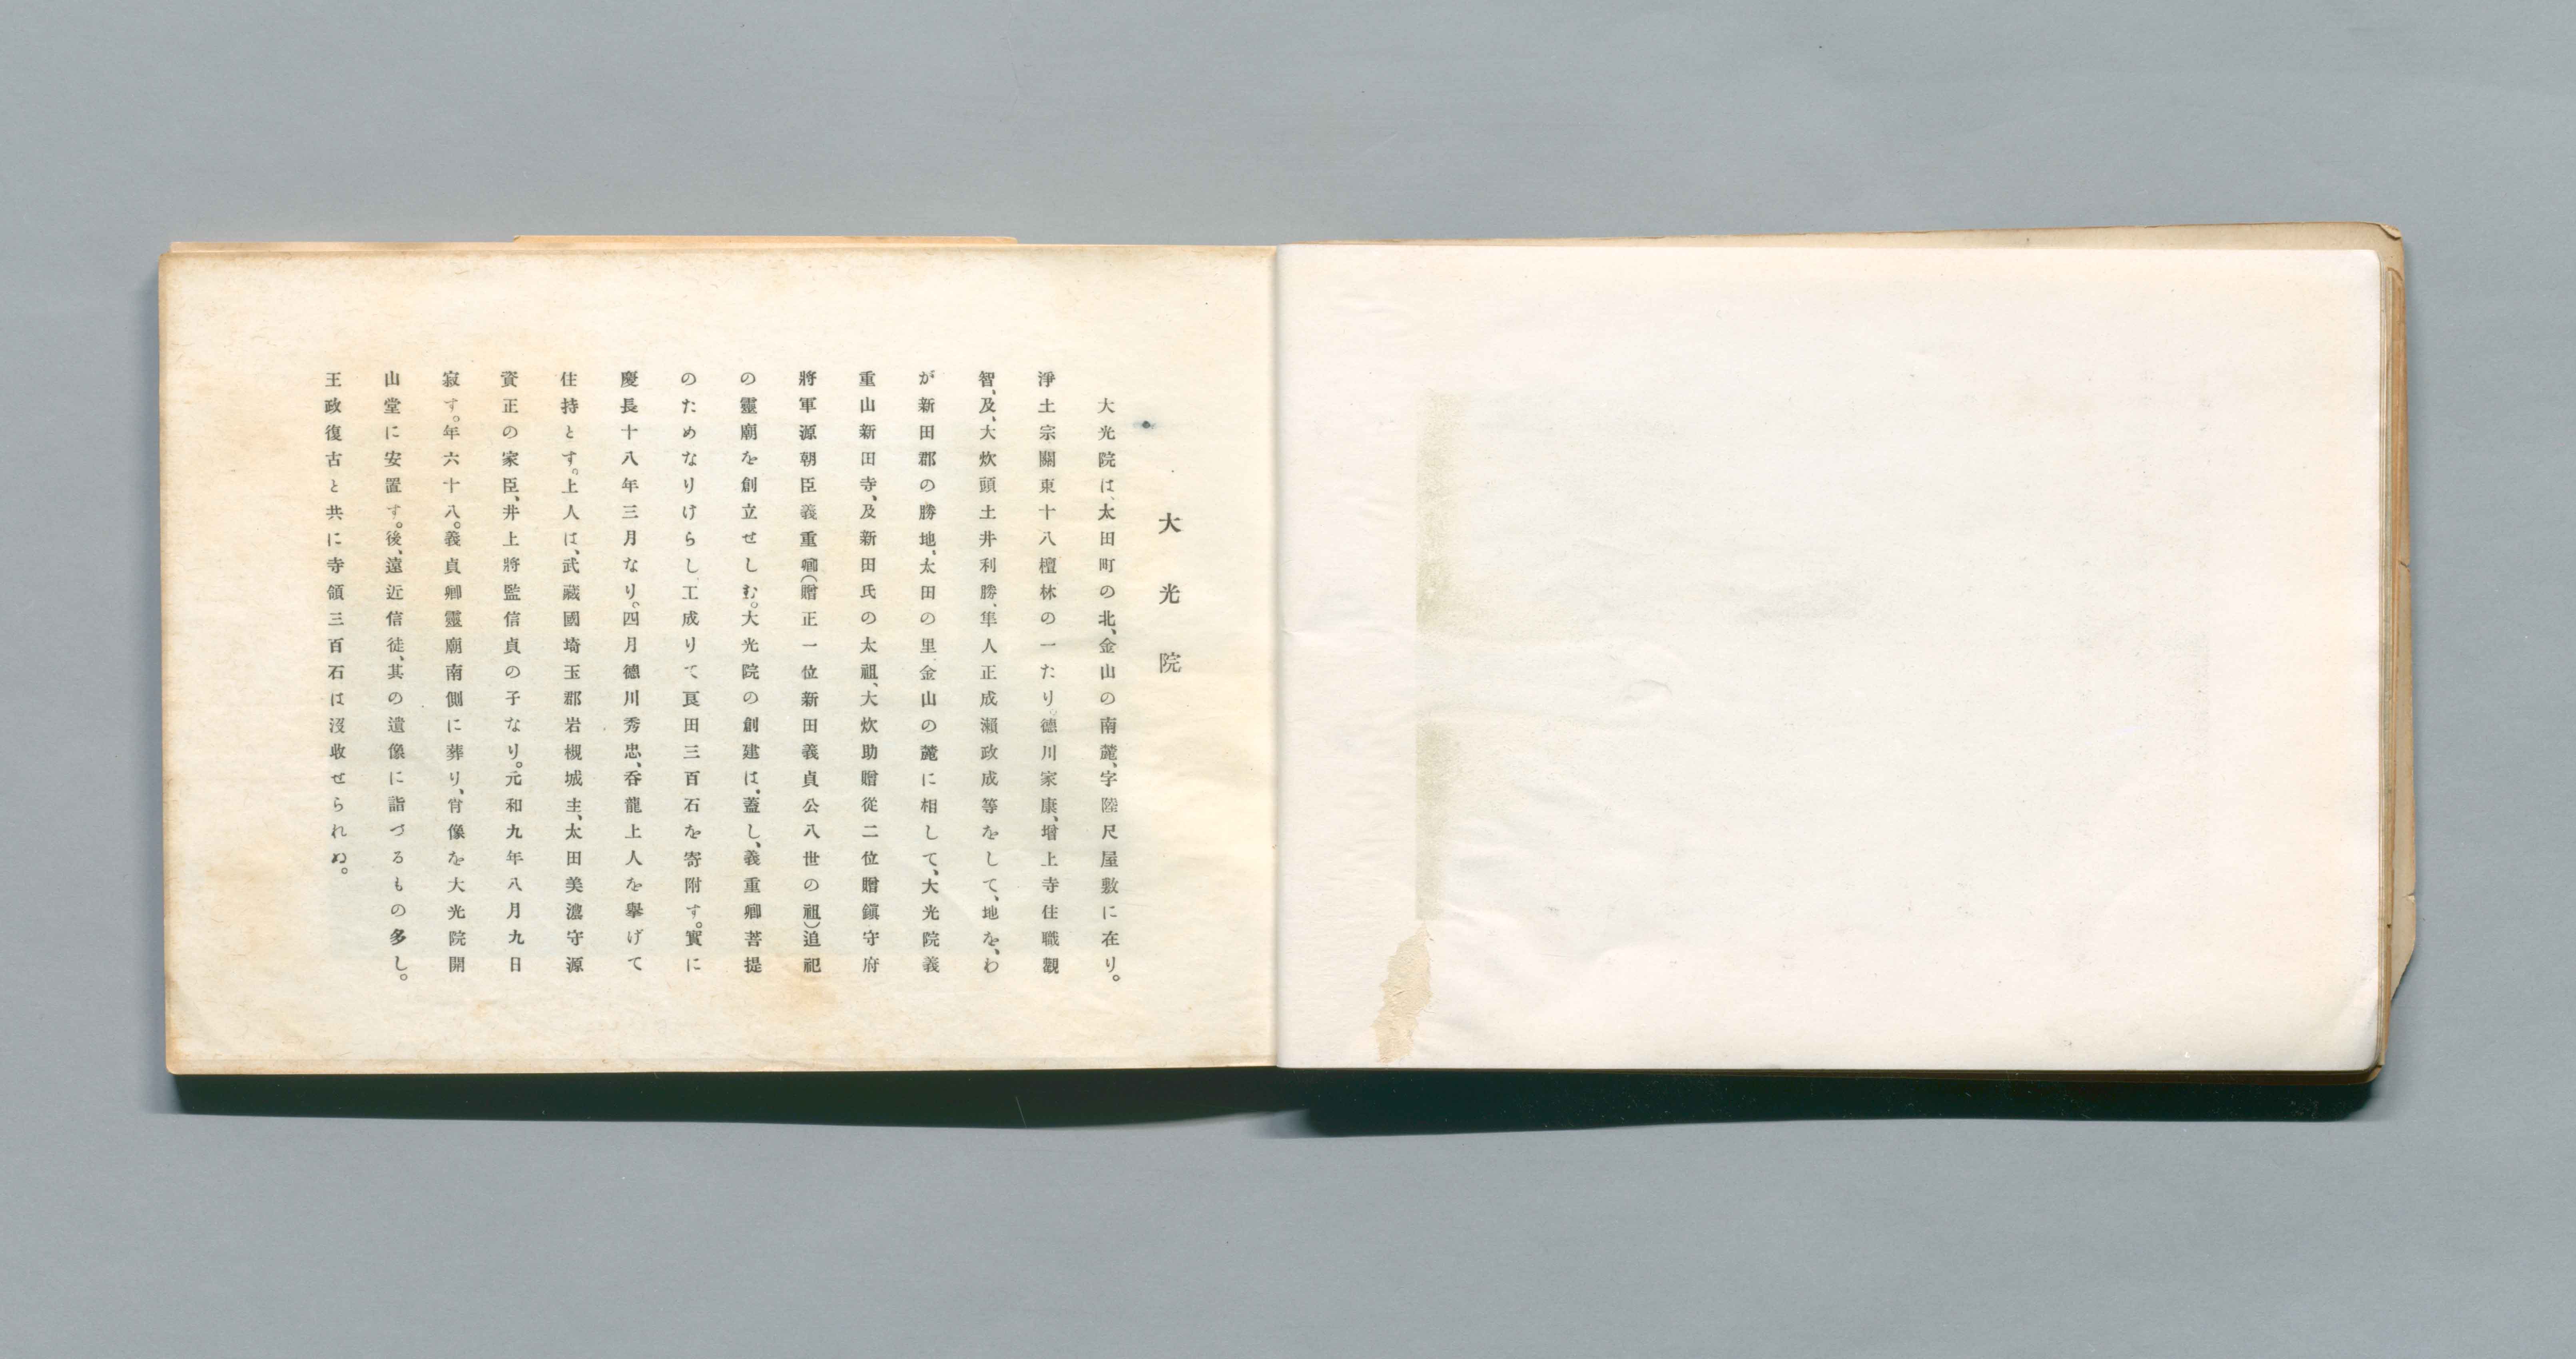 大光院
大光院は、太田町の北、金山の南麓、字陸尺屋敷に在り。
淨土宗關東十八檀林の一たり。德川家康、增上寺住職觀
智、及、大炊頭土井利勝、隼人正成瀨政成等をして、地を、わ
が新田郡の勝地、太田の里、金山の麓に相して、大光院義
重山新田寺、及新田氏の太祖、大炊助贈從二位贈鎭守府
將軍源朝臣義重卿(贈正一位新田義貞公八世の祖)追祀
の靈廟を創立せしむ。大光院の創建は、蓋し、義重卿菩提
のためなりけらし、工成りて良田三百石を寄附す。實に
慶長十八年三月なり。四月德川秀忠、呑龍上人を擧げて
住持とす。上人は、武藏國埼玉郡岩槻城主、太田美濃守源
資正の家臣、井上將監信貞の子なり。元和九年八月九日
寂す。年六十八。義貞卿靈廟南側に葬り、肖像を大光院開
山堂に安置す。後、遠近信徒、其の遺像に詣づるもの多し。
王政復古と共に寺領三百石は沒收せられぬ。